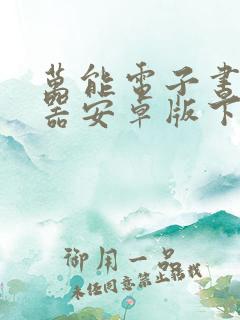 萬能電子書
器安卓版下
御用一品
未经同意禁止转载